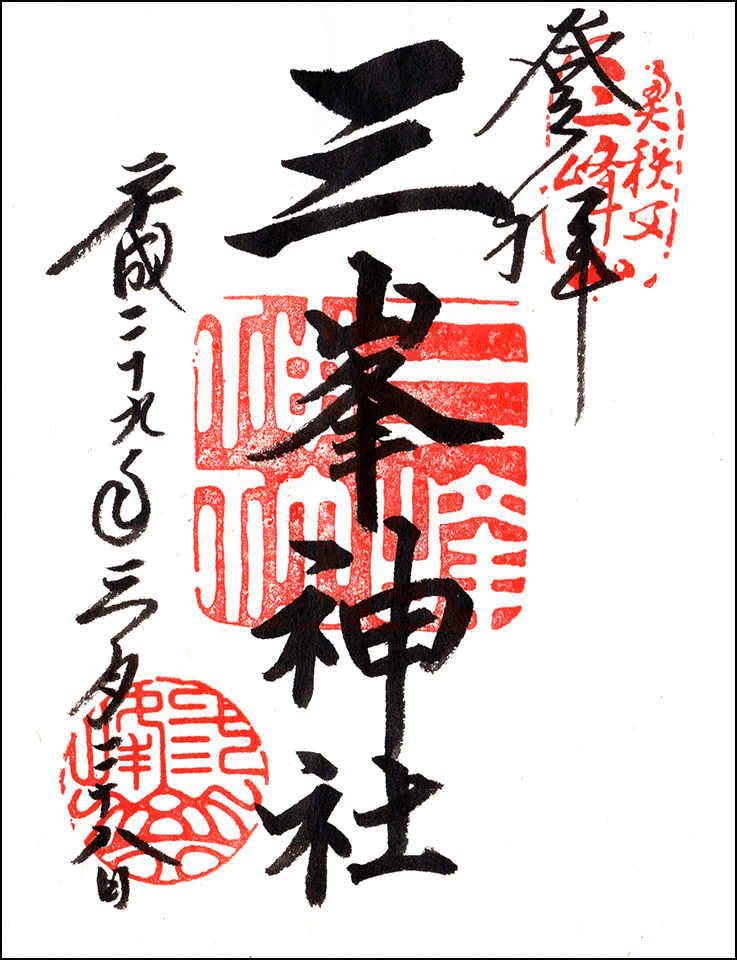 登拝
奥秩父
三峰
三峯神社
三峰神社
平成二十九年三月二十八日